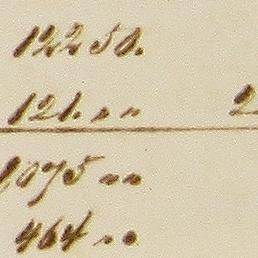 122 50.
121. " " 2
1075 " "
464 " "